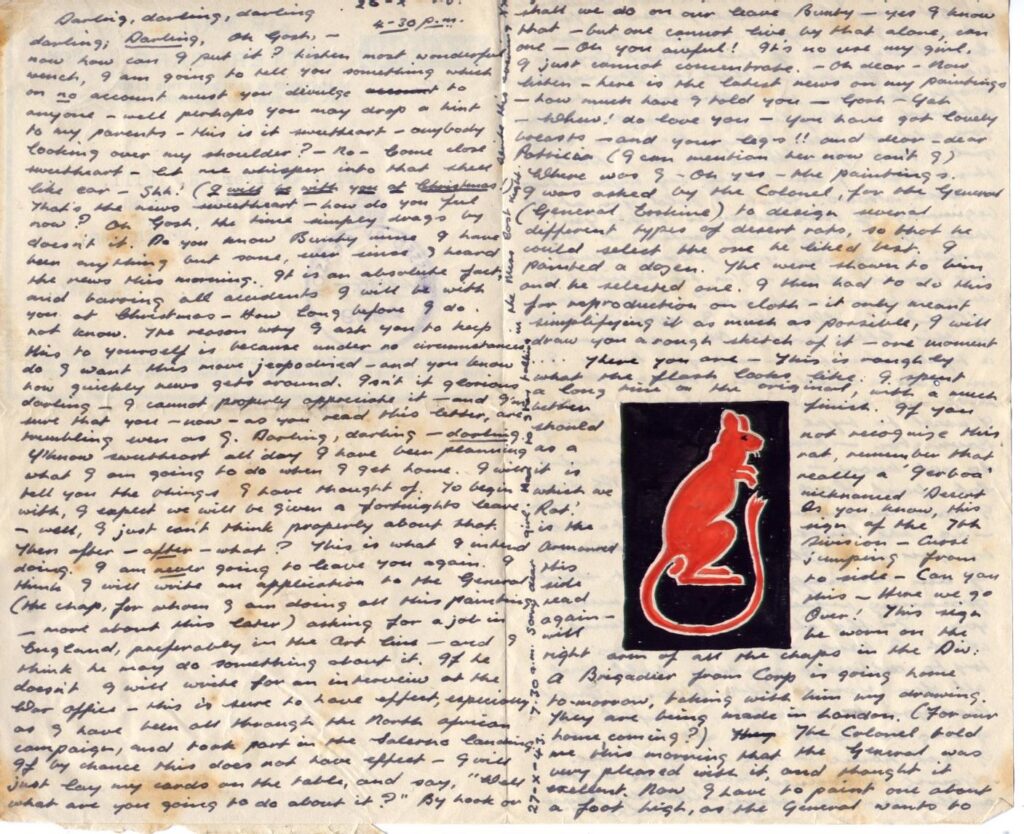 25-X
4-30 p.m.
Darling, darling, darling
darling; Darling, Oh Gosh, –
now how can I put it? Listen most wonderful
wench, I am going to tell you something which
on no account must you divulge account to
anyone – well perhaps you may drop a hint
to my parents – this is it sweetheart – anybody
looking over my shoulder? – No – Come close
sweetheart – let me whisper into that shell
like ear – Shh! (I will be with you at Christmas!)
That's the news sweetheart – how do you feel
now? Oh Gosh, the time simply drags by
doesn't it. Do you know Bunty mine I have
been anything but sane, ever since I heard
the news this morning. It is an absolute fact,
and barring all accidents I will be with
you at Christmas – How long before I do
not know. The reason why I ask you to keep
this to yourself is because under no circumstances
do I want this move jeopodised – and you know
how quickly news gets around. Isn't it glorious
darling – I cannot properly appreciate it – and I'm
sure that you – now – as you read this letter, are
trembling even as I. Darling, darling – darling.
Y'know sweetheart all day I have been planning
what I am going to do when I get home. I will
tell you the things I have thought of. To begin
with, I expect we will be given a fortnights leave
– well, I just can't think properly about that.
Then after – after – what? This is what I intend
doing. I am never going to leave you again. I
think I will write an application to the General
(the chap, for whom I am doing all this painting
– more about this later) asking for a job in
England, preferably in the Art line – and I
think he may do something about it. If he
doesn't I will write for an interview at the
War Office – this is sure to have effect, especially
as I have been all through the North African
campaign, and took part in the Salerno landing.
If by chance this does not have effect – I will
just lay my cards on the table, and say, "Well
what are you going to do about it?" By hook or
27-X-43. 7-30 a.m. in the Mess last night.
shall we do on our leave Bunty – yes I know
that – but one cannot live by that alone, can
one – Oh you awful! It's no use my girl,
I just cannot concentrate. – Oh dear – Now
listen – here is the latest news on my paintings
– how much have I told you – Gosh – Gah
– Whew! do love you – you have got lovely
breasts – and your legs!! and dear – dear
Patricia (I can mention her now can't I)
Where was I – Oh yes – the paintings.
I was asked by the Colonel, for the General
(General Erskine) to design several
different types of desert rats, so that he
could select the one he liked best. I
painted a dozen. The were shown to him
and he selected one. I then had to do this
for reproduction on cloth – it only meant
simplifying it as much as possible, I will
draw you a rough sketch of it – one moment
.... There you are – This is roughly
what the flash looks like. I spent
a long time on the original, with a much
better finish. If you
should not recognise this
as a rat, remember that
it is really a 'Gerboa'
which we nicknamed 'Desert
Rat.' As you know, this
is the sign of the 7th
Armoured Division – Curse
this jumping from
side to side – Can you
read this – Here we go
again – Over! This sign
will be worn on the
right arm of all the chaps in the Div:
A Brigadier from Corp is going home
to-morrow, taking with him my drawing.
They are being made in London. (For our
home coming?) They The Colonel told
me this morning that the General was
very pleased with it, and thought it
exellent. Now I have to paint one about
a foot high, as the General wants to